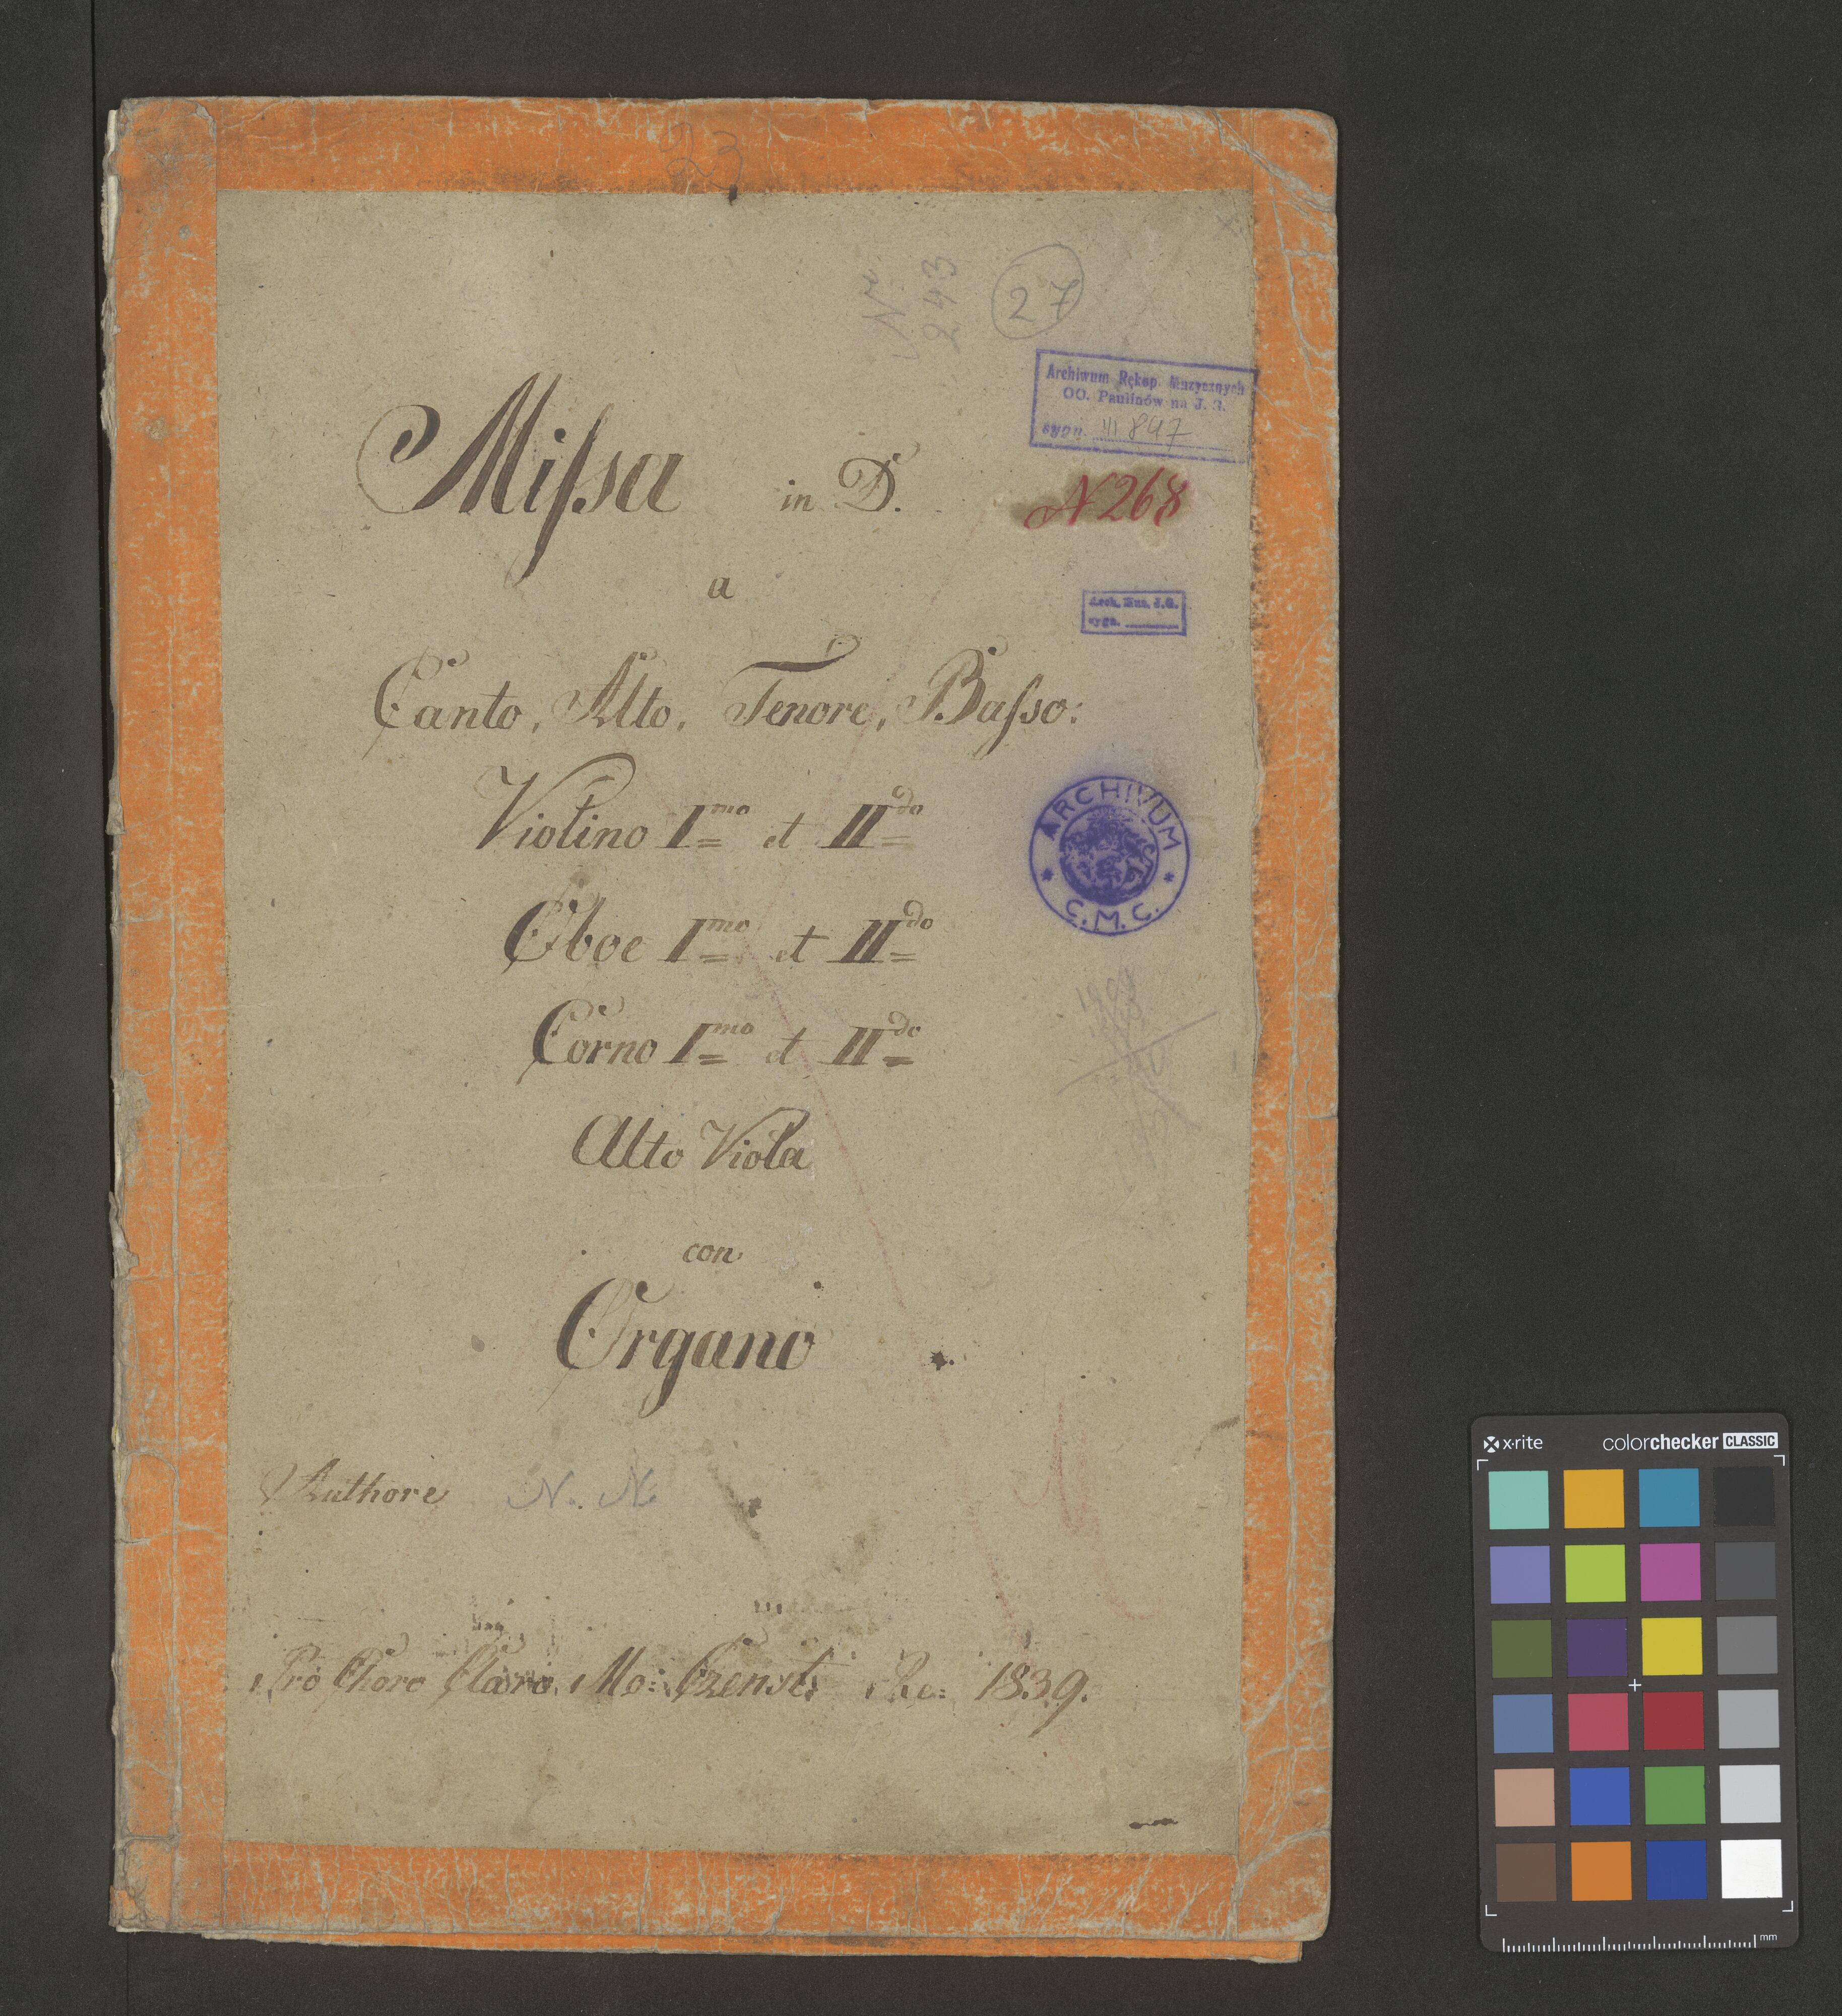 23
Nr.
243
27
Archiwum Rękop. Muzycznych
OO. Paulinów na J. G.
sygn. III 897
Miſsa in D.
N 268
a
Arch. Mus. J.G.
sygn.
Canto, Alto, Tenore, Baſso:
Violino I^mo et II^do
ARCHIVUM
C.M.C.
Oboe I^mo et II^do
Corno I^mo et II^do
Alto Viola
con
Organo
Authore N. N.
Pro Choro Claro Mo: Czenst: 1839.
x-rite colorchecker CLASSIC
mm